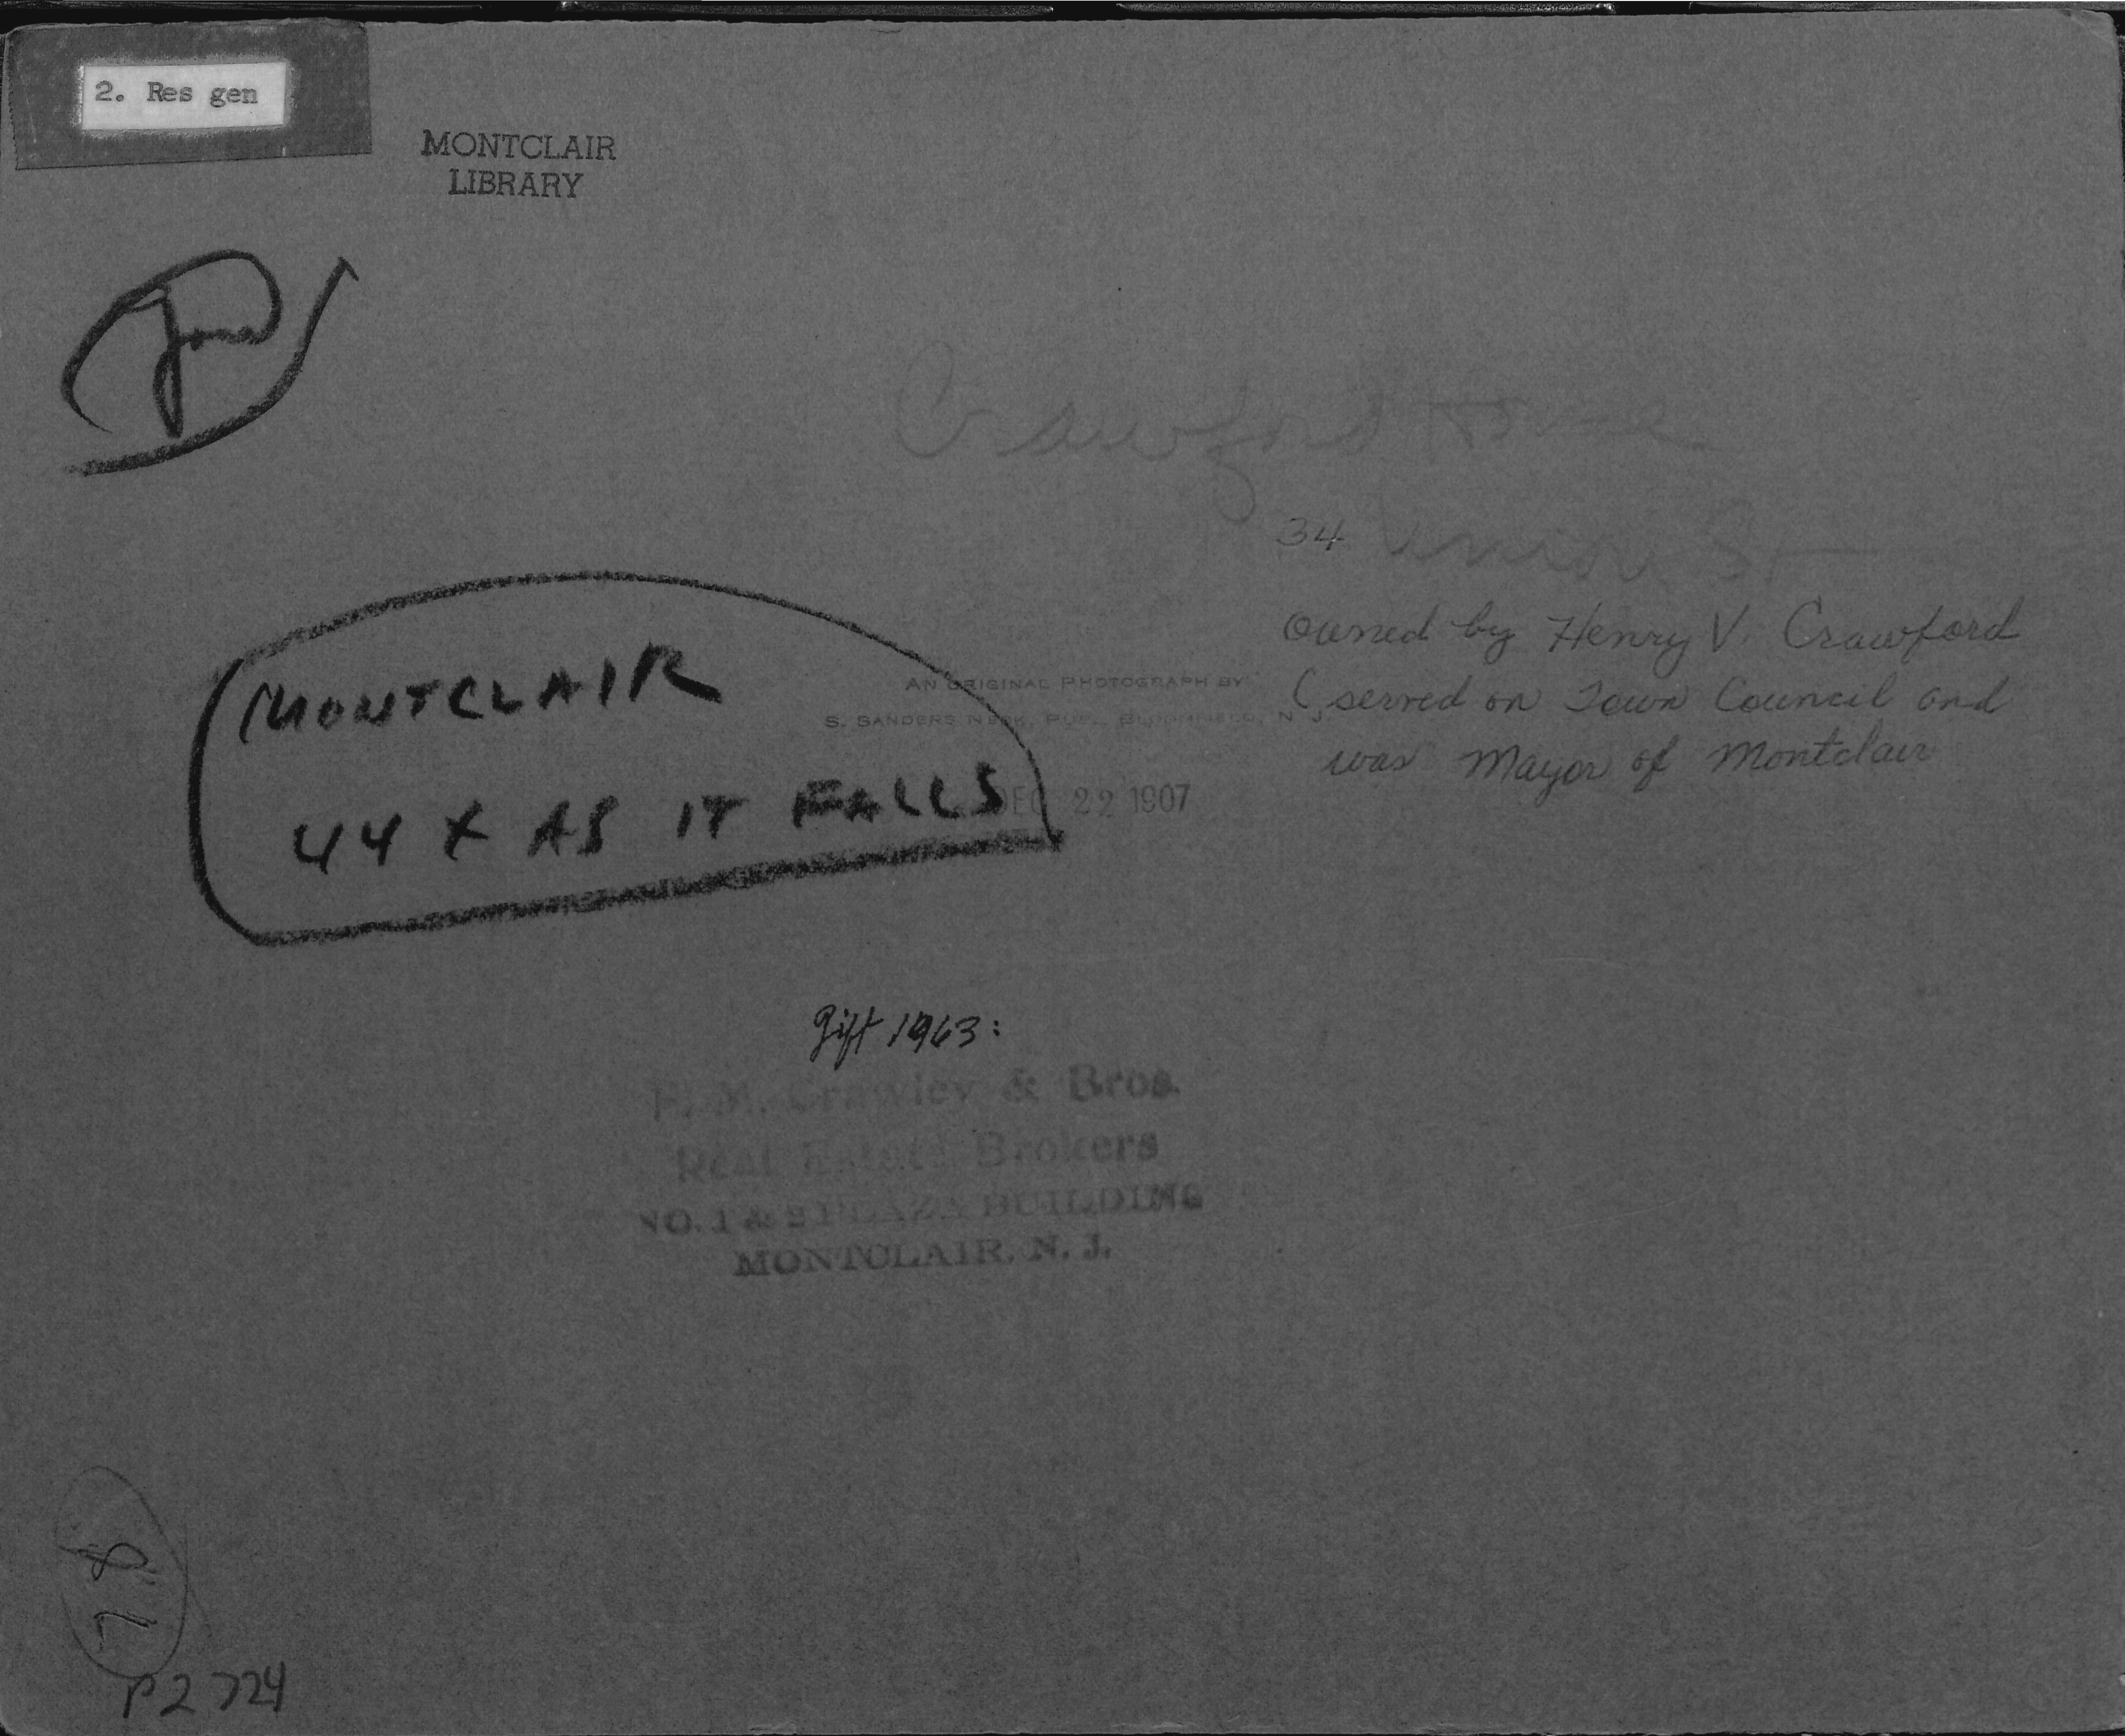 2. Res gen
MONTCLAIR
LIBRARY
Crawford Home
34 Union St
owned by Henry V. Crawford
(served on Town Council and
was Mayor of Montclair
AN ORIGINAL PHOTOGRAPH BY
S. SANDERS NECK, BLOOMFIELD, N. J.
DEC 22 1907
MONTCLAIR
44 X AS IT FALLS
Gift 1963:
F. M. Crawley & Bros.
Real Estate Brokers
NO. 1 & 2 PLAZA BUILDING
MONTCLAIR, N. J.
P2724